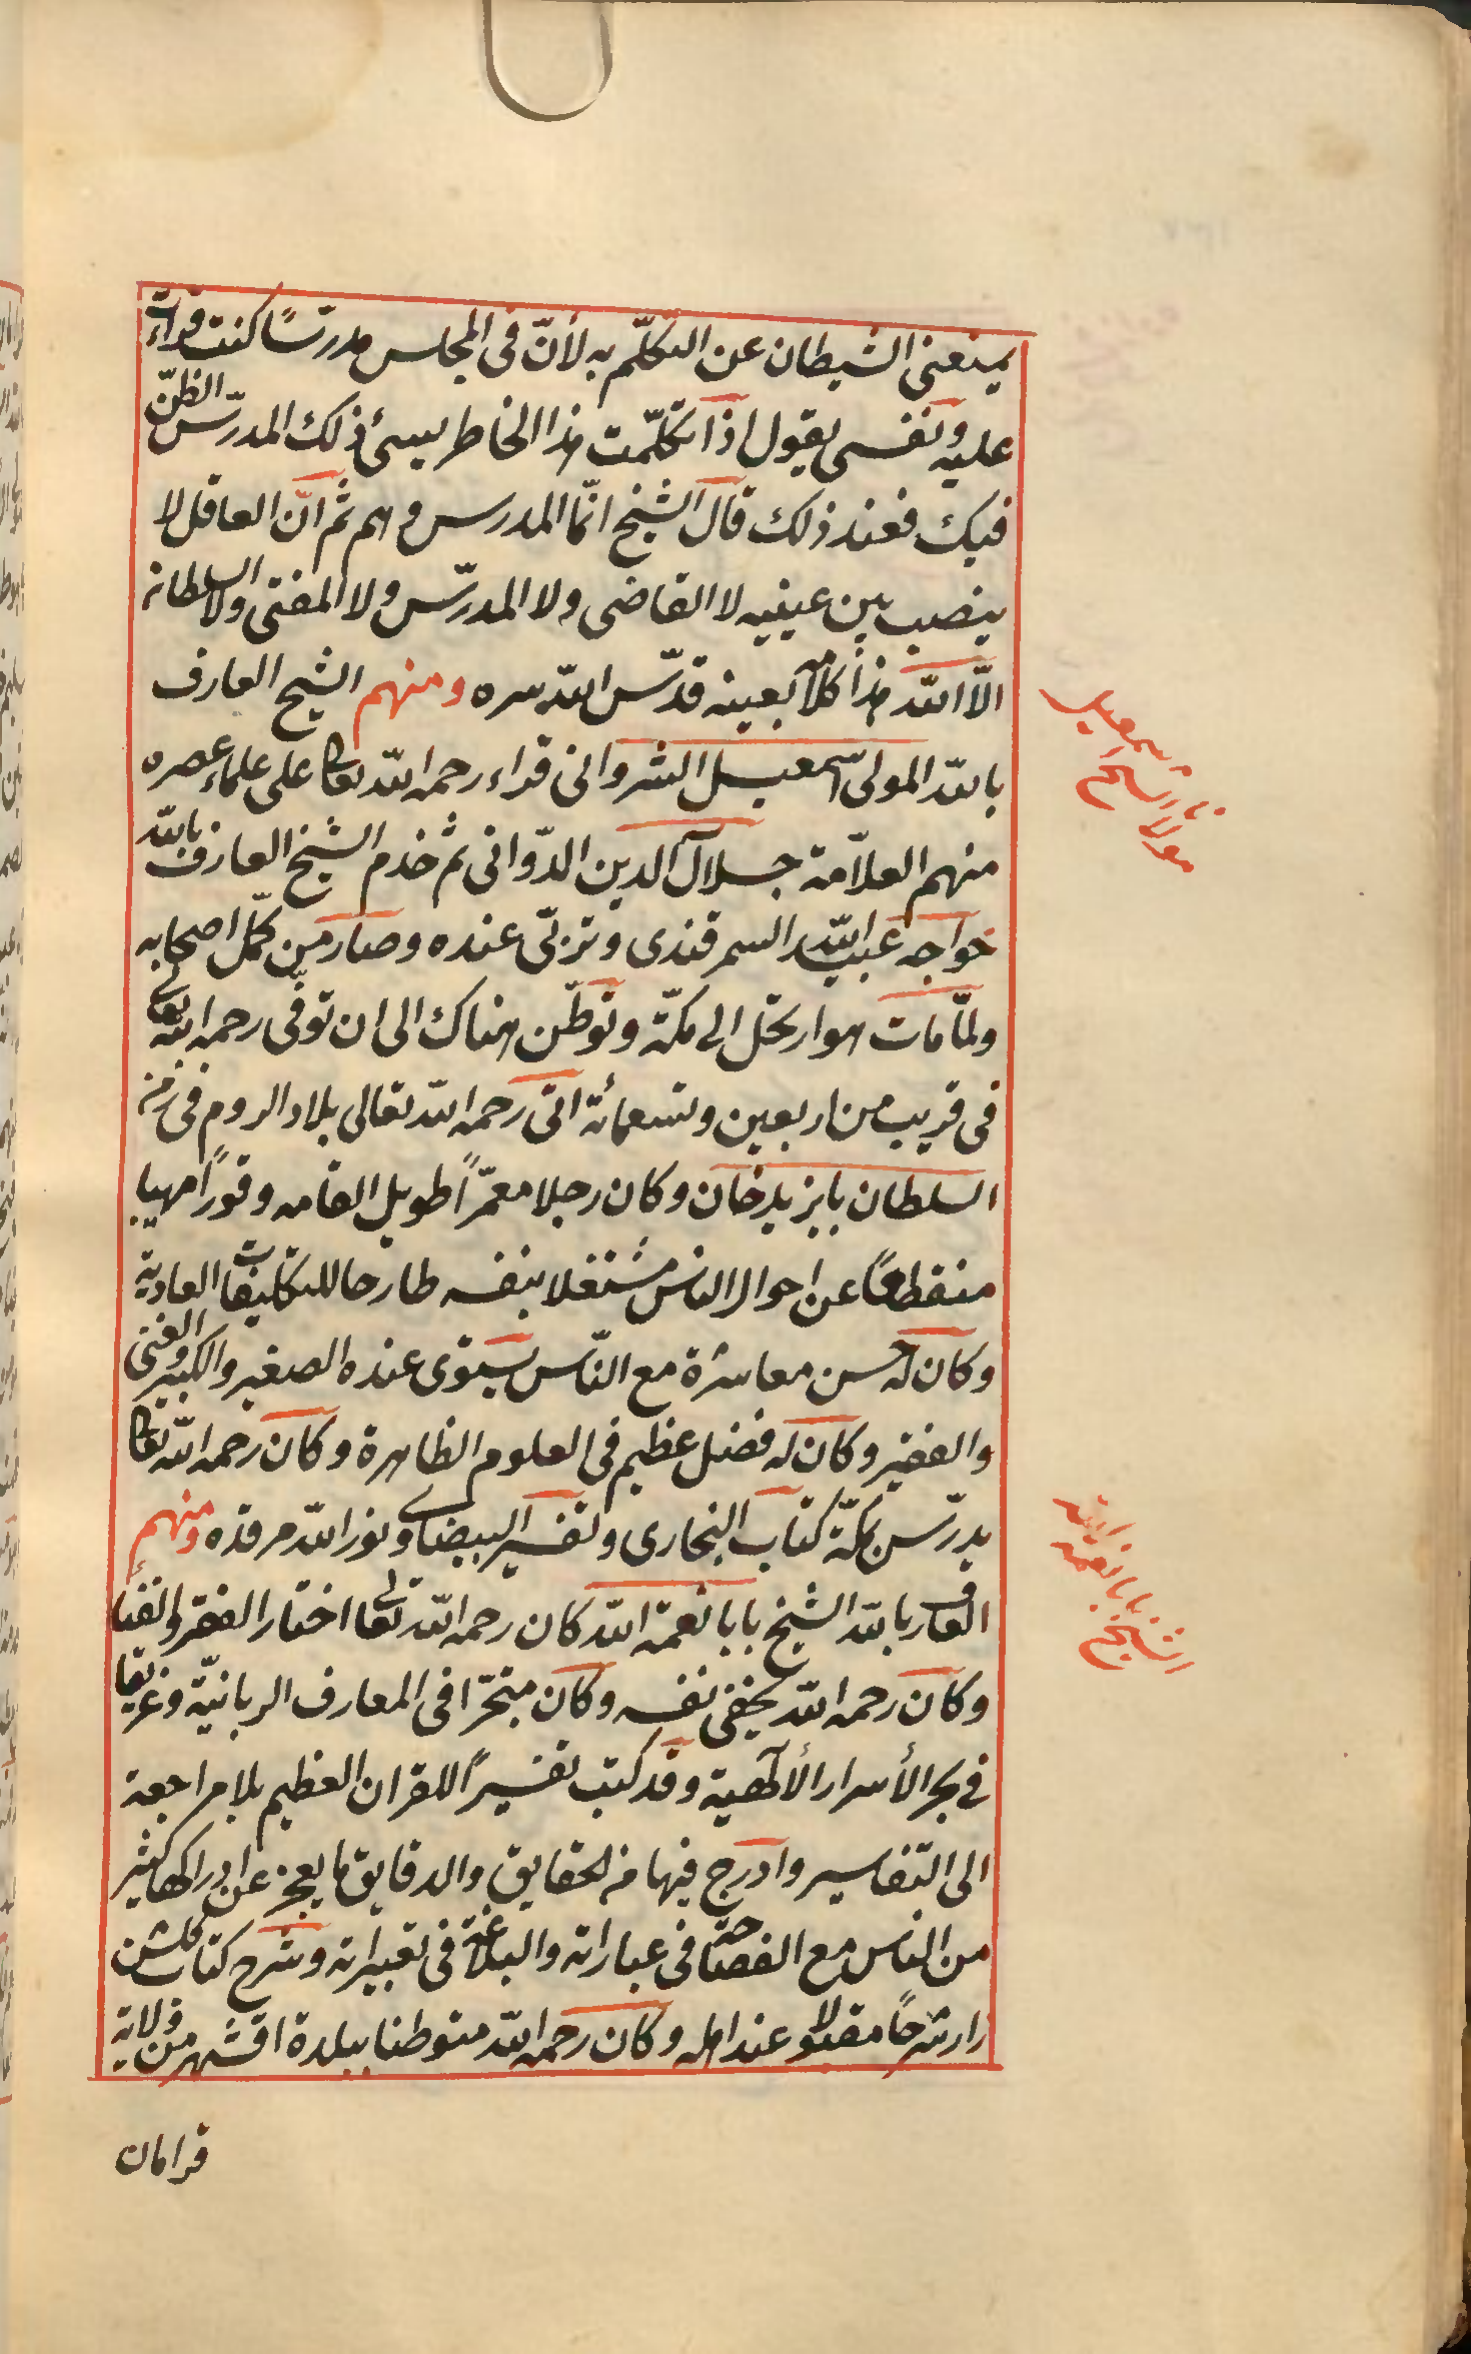 يمنعنى الشيطان عن التكلّم به لأنّ فى المجلس مدرّسًا كنت قرأت
عليه ونفسى يقول اذا تكلّمت هذا الخاطر يسئ ذلك المدرّس الظنّ
فيك فعند ذلك قال الشيخ انّما المدرس وهم ثم انّ العاقل لا
ينصب بين عينيه لا القاضى ولا المدرّس ولا المفتى ولا السلطان
الّا الله هذا كلامه بعينه قدّس الله سره ومنهم الشيخ العارف
بالله المولى اسمعيل الشروانى قراء رحمه الله تعا على علماء عصره
منهم العلاّمة جلال الدين الدّوانى ثم خدم الشيخ العارف بالله
خواجه عبيد الله السمرقندى وتربّى عنده وصار من كمّل اصحابه
ولمّا مات هو ارتحل الى مكّة وتوطّن هناك الى ان توفّى رحمه الله تعالى
فى قريب من اربعين وتسعمائة اتى رحمه الله تعالى بلاد الروم فى زمن
السلطان بايزيد خان وكان رجلا معمّرًا طويل القامه وقورًا مهيبا
منقطعًا عن احوال الناس مشتغلا بنفسه طارحا للتكليفات العادية
وكان له حسن معاشرة مع النّاس يستوى عنده الصغير والكبير والغنى
والفقير وكان له فضل عظيم فى العلوم الظاهرة وكان رحمه الله تعا
يدرّس بمكّة كتاب البخارى وتفسير البيضاوى ونور الله مرقده ومنهم
العارف بالله الشيخ بابا نعمة الله كان رحمه الله تعالى اختار الفقر والفنا
وكان رحمه الله يخفى نفسه وكان متبحّرا فى المعارف الربانيّة وغريقا
فى بحر الأسرار الألٓهية وقد كتب تفسيرًا للقران العظيم بلا مراجعة
الى التفاسير وادرج فيها من الحقايق والدقايق ما يعجز عن ادراكها كثير
من الناس مع الفصاحة فى عباراته والبلاغة فى تعبيراته وشرح كتاب كلشن
راز شرحًا مقبولا عند اهله وكان رحمه الله متوطنا ببلدة اقشهر من ولاية
قرامان
مولانا الشيخ اسمعيل
الشيخ بابا نعمة الله